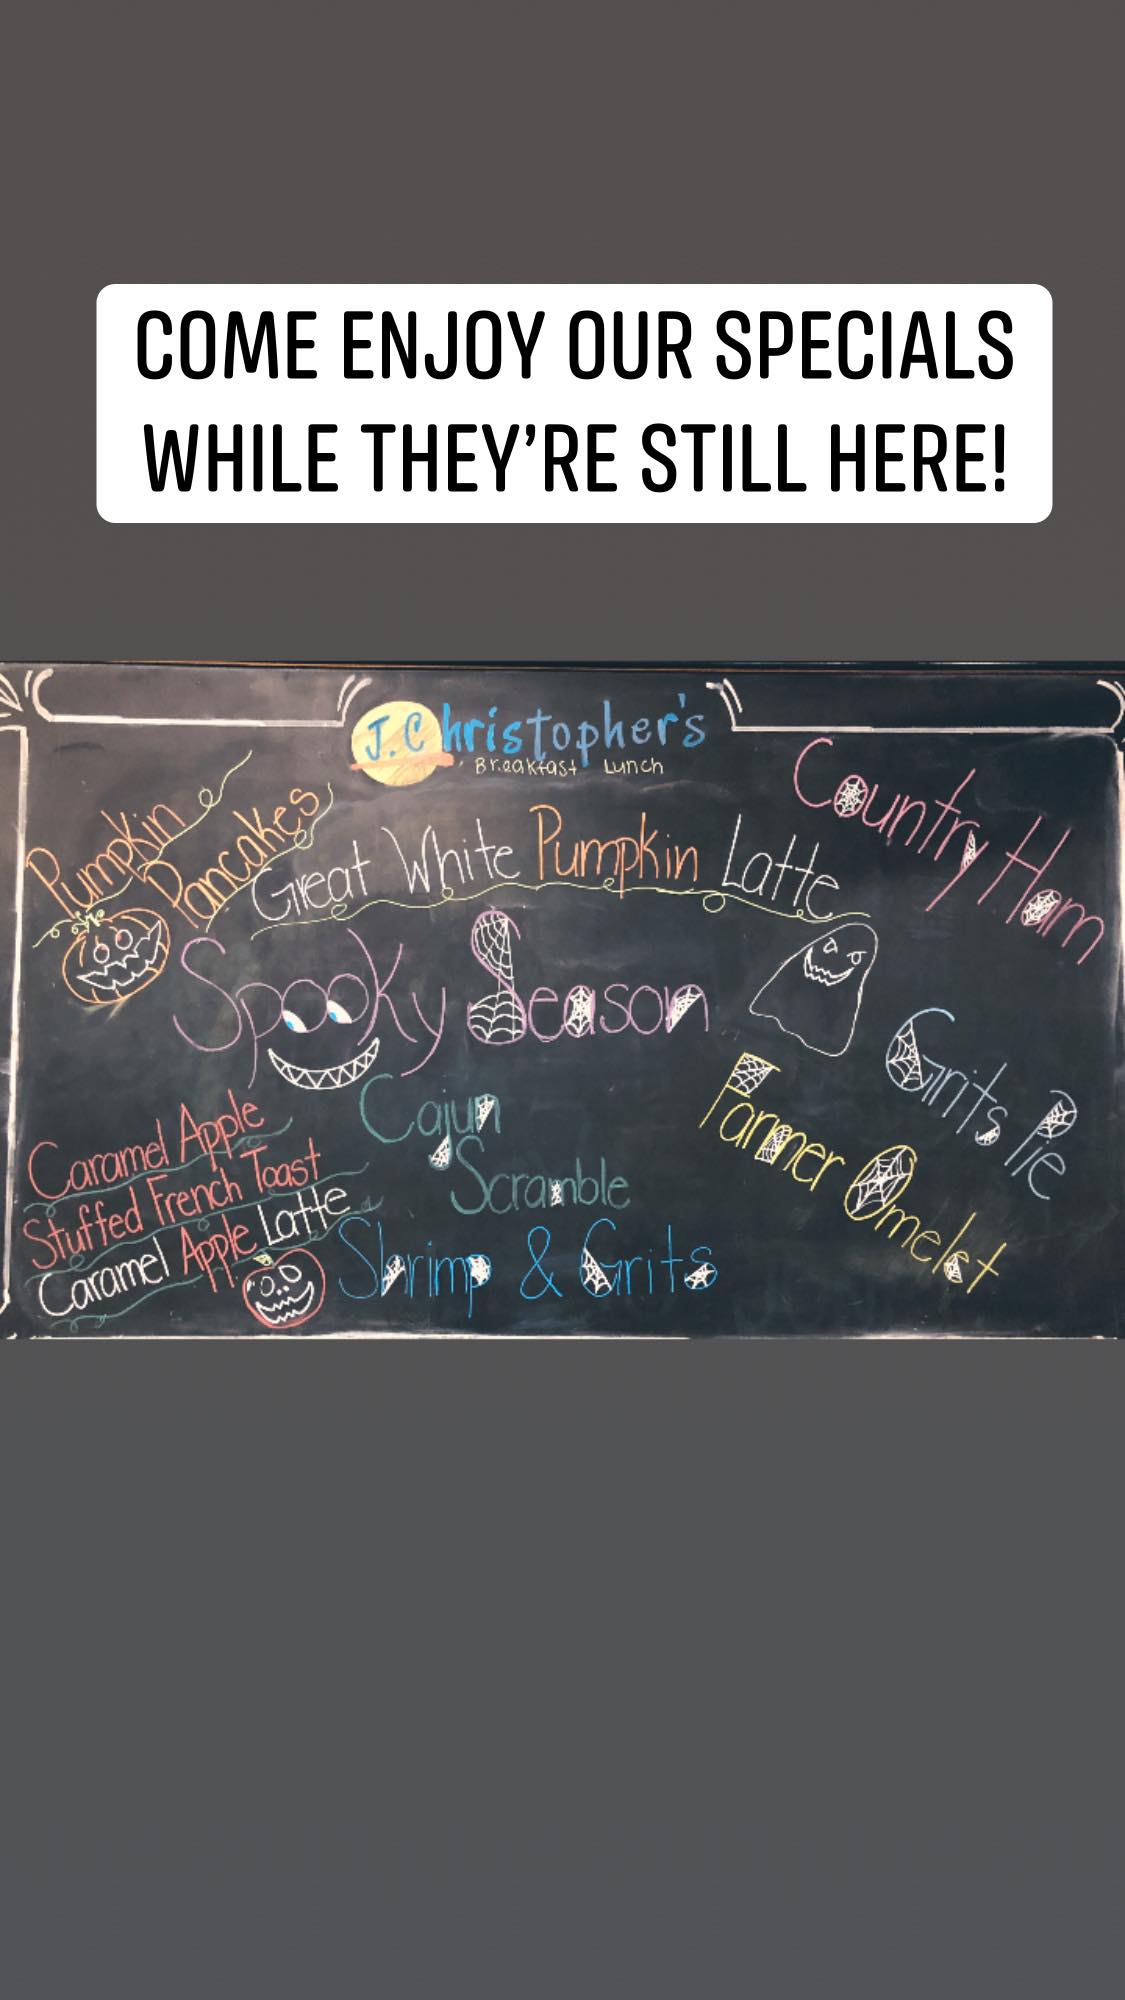 COME ENJOY OUR SPECIALS
WHILE THEY'RE STILL HERE!
J. Christopher's
Breakfast Lunch
Pumpkin
Pancakes
Great White Pumpkin Latte
Country Ham
Spooky Season
Grits Pie
Farmer Omelet
Cajun
Scramble
Caramel Apple
Stuffed French Toast
Caramel Apple Latte
Shrimp & Grits